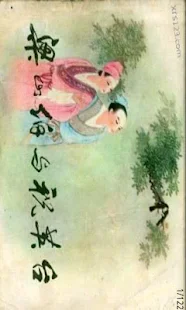 梁山伯与祝英台
xrs123.com
1/122